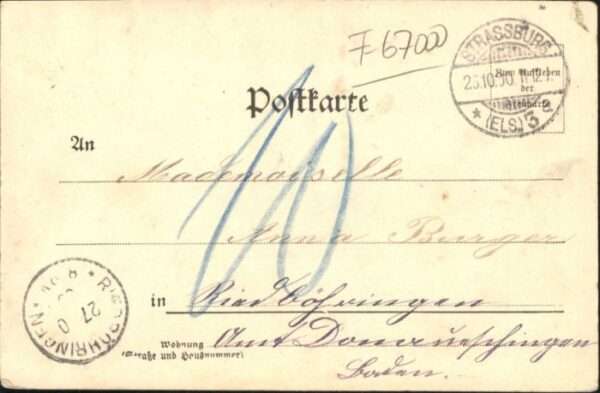 F 67000
STRASSBURG
(ELS.) 3
Zum Aufkleben
der
Postkarte
10
An
Mademoiselle
Anna Burger
in Riedböhringen
RIEDBÖHRINGEN
27
Wohnung
(Straße und Hausnummer)
Amt Donaueschingen
Baden.